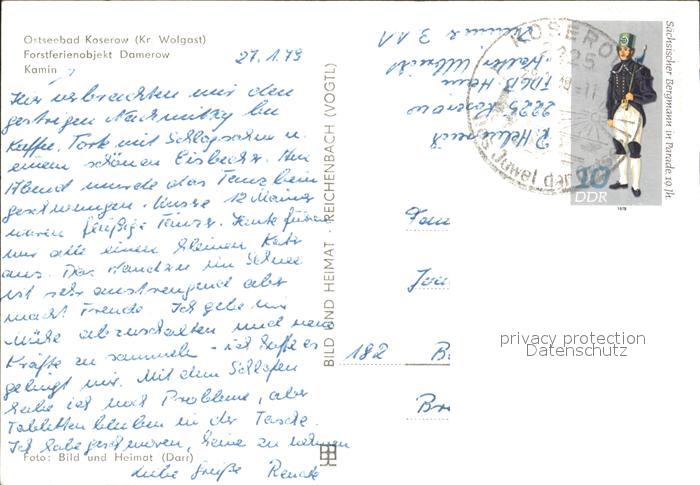 Ostseebad Koserow (Kr. Wolgast)
Forstferienobjekt Damerow
Kamin
27.1.79
Hier verbrachten wir den
gestrigen Nachmittag bei
Kaffee, Torte mit Schlagsahne u.
einem schönen Eisbecher. Am
Abend wurde das Tanzbein
geschwungen. Unsere 12 Männer
waren fleißige Tänzer. Heute führen
wir alle einen kleinen Kater
aus. Das Wandern im Schnee
ist sehr anstrengend aber
macht Freude. Ich gebe mir
Mühe abzuschalten und neue
Kräfte zu sammeln - ich hoffe es
gelingt mir. Mit dem Schlafen
habe ich noch Probleme, aber
Tabletten bleiben in der Tasche.
Ich habe geschworen, keine zu nehmen
Liebe Grüße Renate
Foto: Bild und Heimat (Darr)
BILD UND HEIMAT · REICHENBACH (VOGTL)
R. Helmreich
2225 Koserow
FDGB-Heim
Walter Ulbricht
Zimmer 311
KOSEROW
2225
-11
Juwel der
Sächsischer Bergmann in Parade 19. Jh.
10
DDR
1978
Fam
182 B
privacy protection
Datenschutz